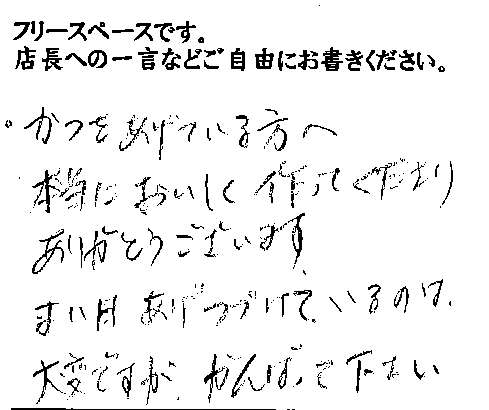 フリースペースです。
店長への一言などご自由にお書きください。
。かつをあげている方へ
本当においしく作ってくださり
ありがとうございます
まい日あげつづけているのは、
大変ですが、がんばって下さい